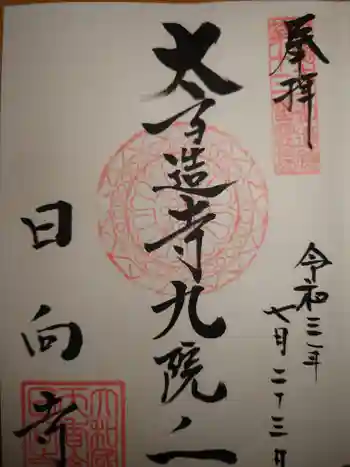 奉拝
令和三年
七月二十三日
太子造寺九院之一
日向寺